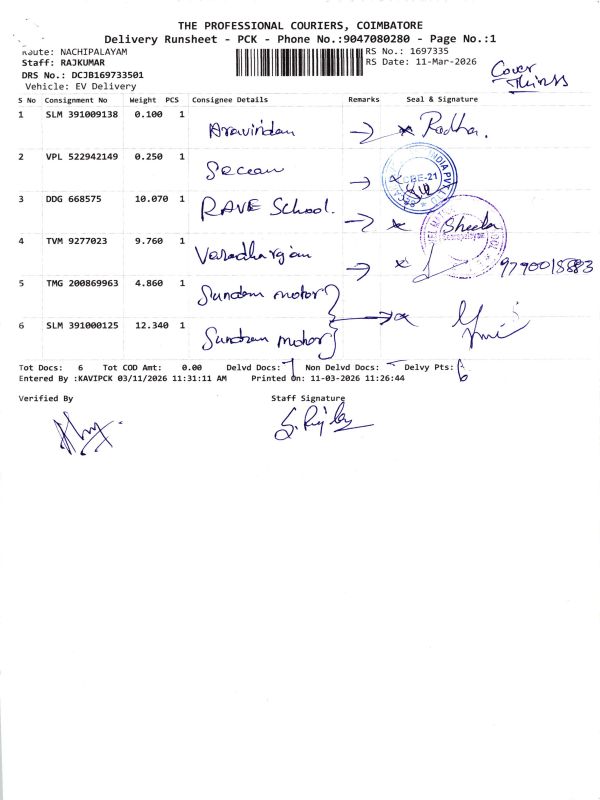 THE PROFESSIONAL COURIERS, COIMBATORE
Delivery Runsheet - PCK - Phone No.:9047080280 - Page No.:1
Route: NACHIPALAYAM
RS No.: 1697335
Staff: RAJKUMAR
RS Date: 11-Mar-2026
Cover
DRS No.: DCJB169733501
Vehicle: EV Delivery
S No Consignment No Weight PCS Consignee Details Remarks Seal & Signature
1 SLM 391009138 0.100 1 Aravindan Radha.
2 VPL 522942149 0.250 1
INDIA PVT LTD
CBE-21
3 DDG 668575 10.070 1 RAVE School. Sheela
4 TVM 9277023 9.760 1 Varadhargan
5 TMG 200869963 4.860 1 Sundam motor
6 SLM 391000125 12.340 1 Sundram motor
Tot Docs: 6 Tot COD Amt: 0.00 Delvd Docs: Non Delvd Docs: Delvy Pts: 6
Entered By :KAVIPCK 03/11/2026 11:31:11 AM Printed On: 11-03-2026 11:26:44
Verified By Staff Signature